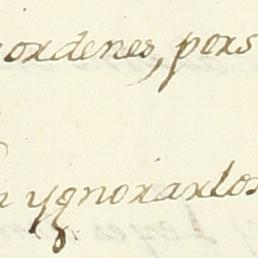 ordenes, pors
ygnorarlos